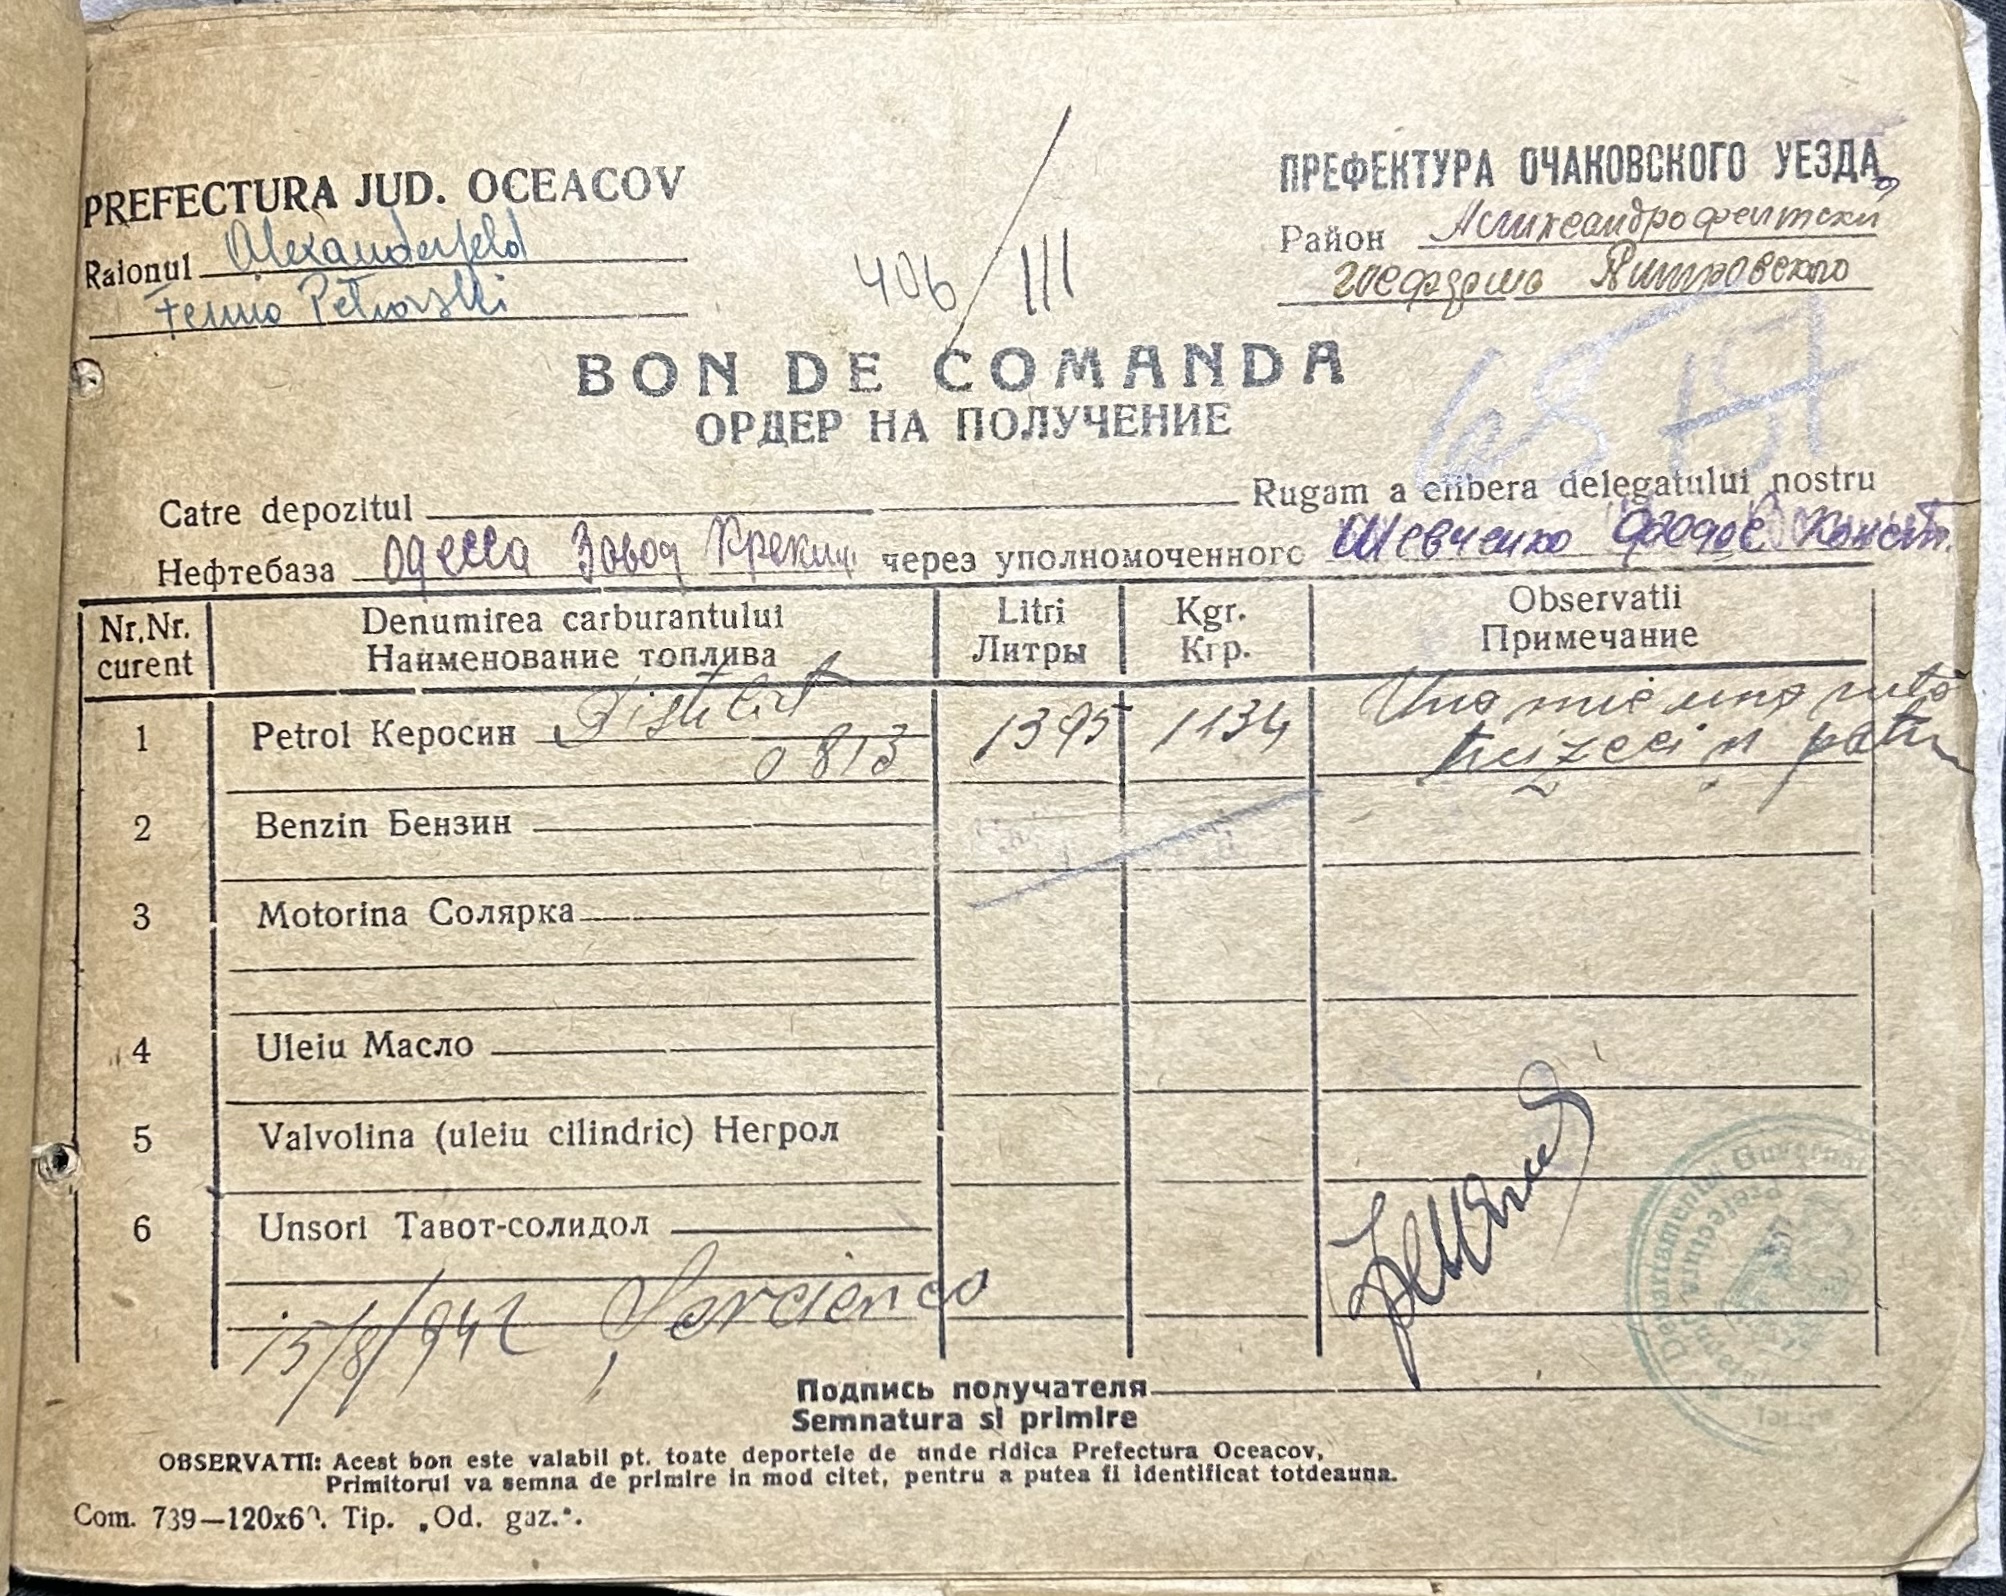 PREFECTURA JUD. OCEACOV
Raionul Alexanderfeld
Ferma Petrovski
406/III
ПРЕФЕКТУРА ОЧАКОВСКОГО УЕЗДА
Район
BON DE COMANDA
ОРДЕР НА ПОЛУЧЕНИЕ
68
Catre depozitul Rugam a elibera delegatului nostru
Нефтебаза Одесса Завод Крекинг через уполномоченного Шевченко Федос Конст.
Nr.Nr. curent
Denumirea carburantului
Наименование топлива
Litri
Литры
Kgr.
Кгр.
Observatii
Примечание
1 Petrol Керосин Distilat 0813 1395 1134 Una mie una suta
treizeci si patru
2 Benzin Бензин
3 Motorina Солярка
4 Uleiu Масло
5 Valvolina (uleiu cilindric) Негрол
6 Unsori Тавот-солидол
15/8/942
Подпись получателя
Semnatura si primire
OBSERVATII: Acest bon este valabil pt. toate deportele de unde ridica Prefectura Oceacov,
Primitorul va semna de primire in mod citet, pentru a putea fi identificat totdeauna.
Com. 739—120x60. Tip. „Od. gaz.".